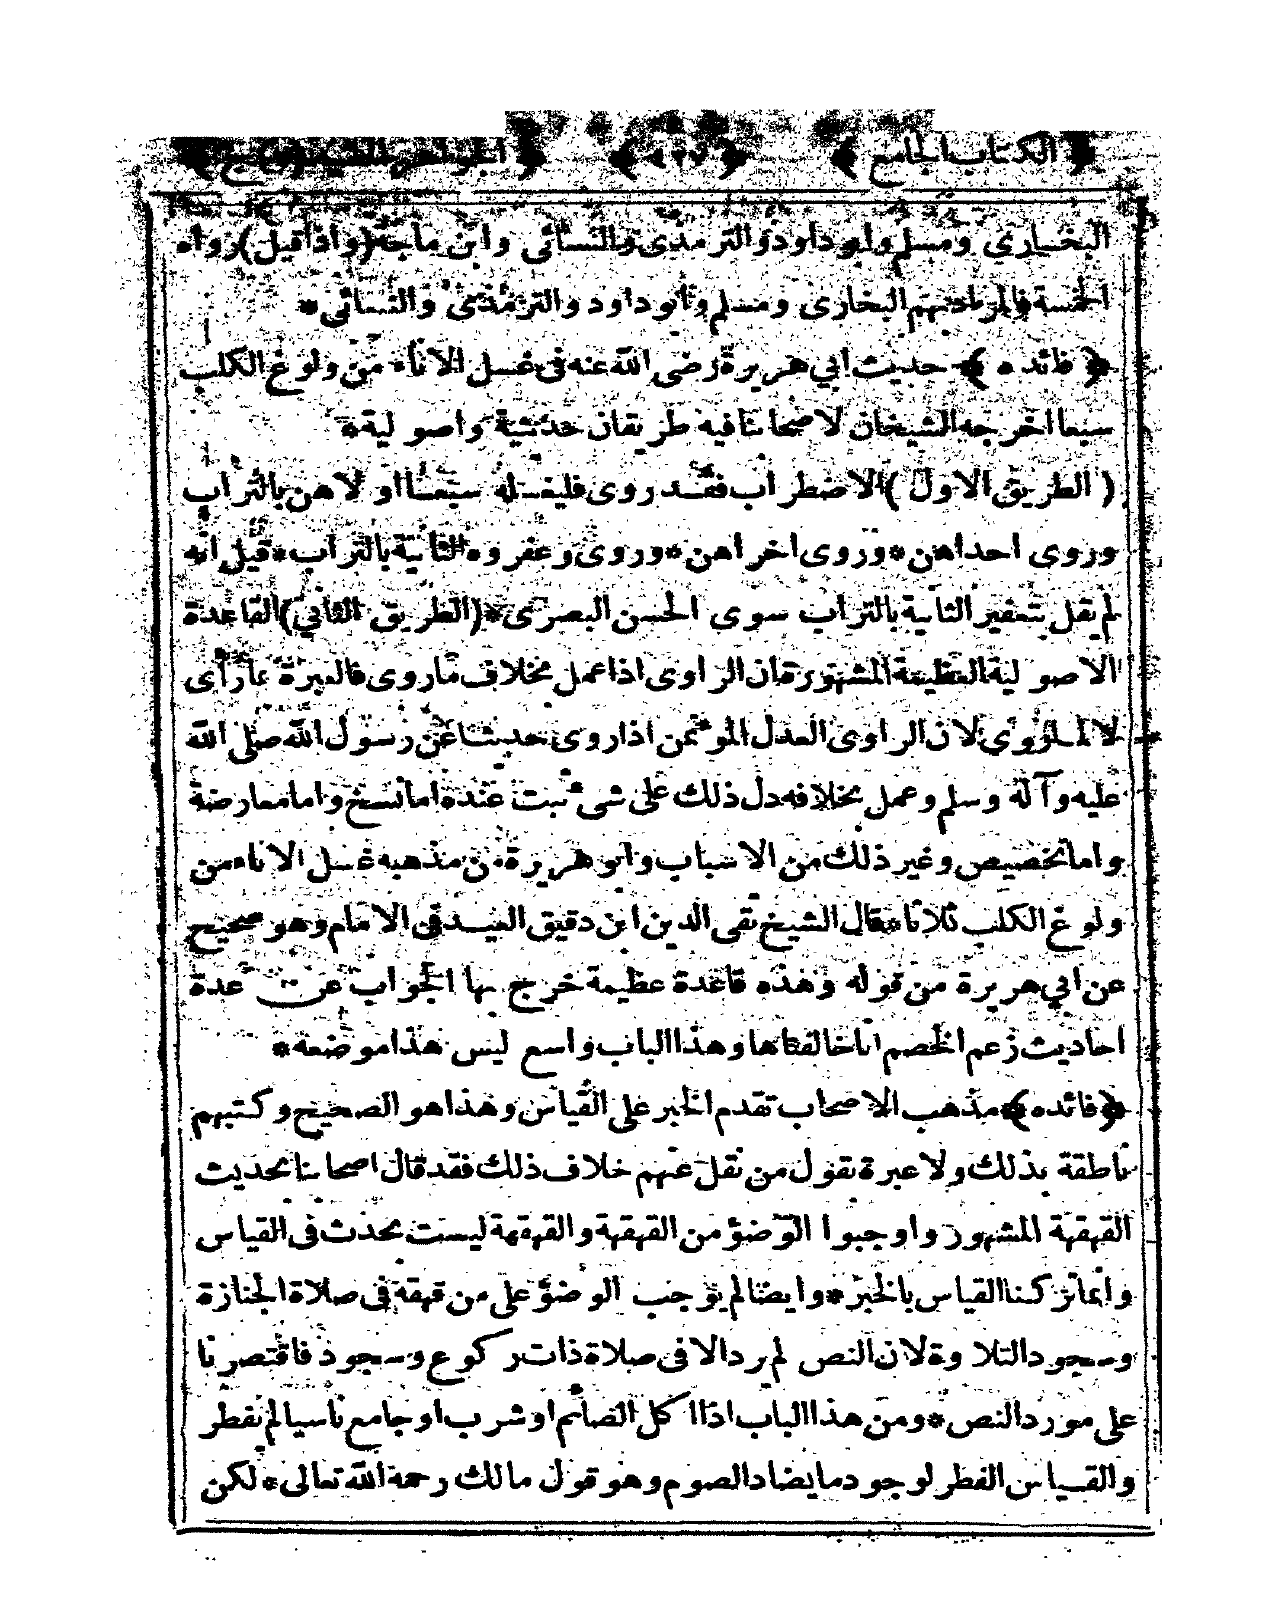 ﴿ الكتاب الجامع ﴾ ﴿ ٤٢٧ ﴾ ﴿ الجواهر المضية ﴾
البخارى ومسلم وابو داود والترمذى والنسائى وابن ماجة (واذا قيل) رواه
الخمسة فالمراد بهم البخارى ومسلم وابو داود والترمذى والنسائى *
﴿ فائده ﴾ حديث ابي هريرة رضى الله عنه فى غسل الاناء من ولوغ الكلب
سبعا اخرجه الشيخان لاصحابنا فيه طريقان حديثية واصولية *
( الطريق الاول ) الاضطراب فقد روى فليغسله سبعا اولاهن بالتراب
وروى احداهن * وروى اخراهن * وروى وعفروه الثانية بالتراب * قيل انه
لم يقل بتعفير الثانية بالتراب سوى الحسن البصرى * (الطريق الثاني) القاعدة
الاصولية العظيمة المشهورة ان الراوى اذا عمل بخلاف ما روى فالعبرة بما رأى
لا لما روى لان الراوى العدل المؤتمن اذا روى حديثا عن رسول الله صلى الله
عليه وآله وسلم وعمل بخلافه دل ذلك على شئ ثبت عنده اما نسخ واما معارضة
واما تخصيص وغير ذلك من الاسباب وابو هريرة من مذهبه غسل الاناء من
ولوغ الكلب ثلاثا * قال الشيخ تقى الدين ابن دقيق العيد فى الامام وهو صحيح
عن ابي هريرة من قوله وهذه قاعدة عظيمة خرج بها الجواب عن عدة
احاديث زعم الخصم انا خالفناها وهذا الباب واسع ليس هذا موضعه *
﴿ فائده ﴾ مذهب الاصحاب تقدم الخبر على القياس وهذا هو الصحيح وكتبهم
ناطقة بذلك ولا عبرة بقول من نقل عنهم خلاف ذلك فقد قال اصحابنا بحديث
القهقهة المشهور واوجبوا الوضؤ من القهقهة والقهقهة ليست بحدث فى القياس
وانما تركنا القياس بالخبر * وايضا لم يوجب الوضؤ على من قهقه فى صلاة الجنازة
وسجود التلاوة لان النص لم يرد الا فى صلاة ذات ركوع وسجود فاقتصرنا
على مورد النص * ومن هذا الباب اذا اكل الصائم او شرب او جامع ناسيا لم يفطر
والقياس الفطر لوجود ما يضاد الصوم وهو قول مالك رحمة الله تعالى * لكن